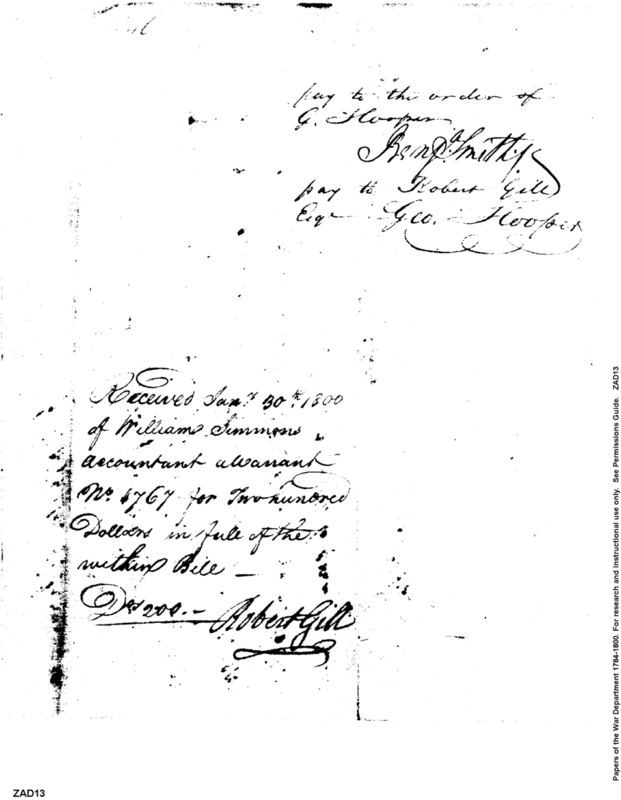 pay to the order of
G. Hooper
Benjn. Smith
pay to Robert Gill
Esqr Geo. Hooper
Received Jany. 30th. 1800
of William Simmons
Accountant a Warrant
No. 4767 for Two hundred
Dollars in full of the
within Bill —
Drs 200. — Robert Gill
ZAD13
Papers of the War Department 1784-1800. For research and Instructional use only. See Permissions Guide. ZAD13